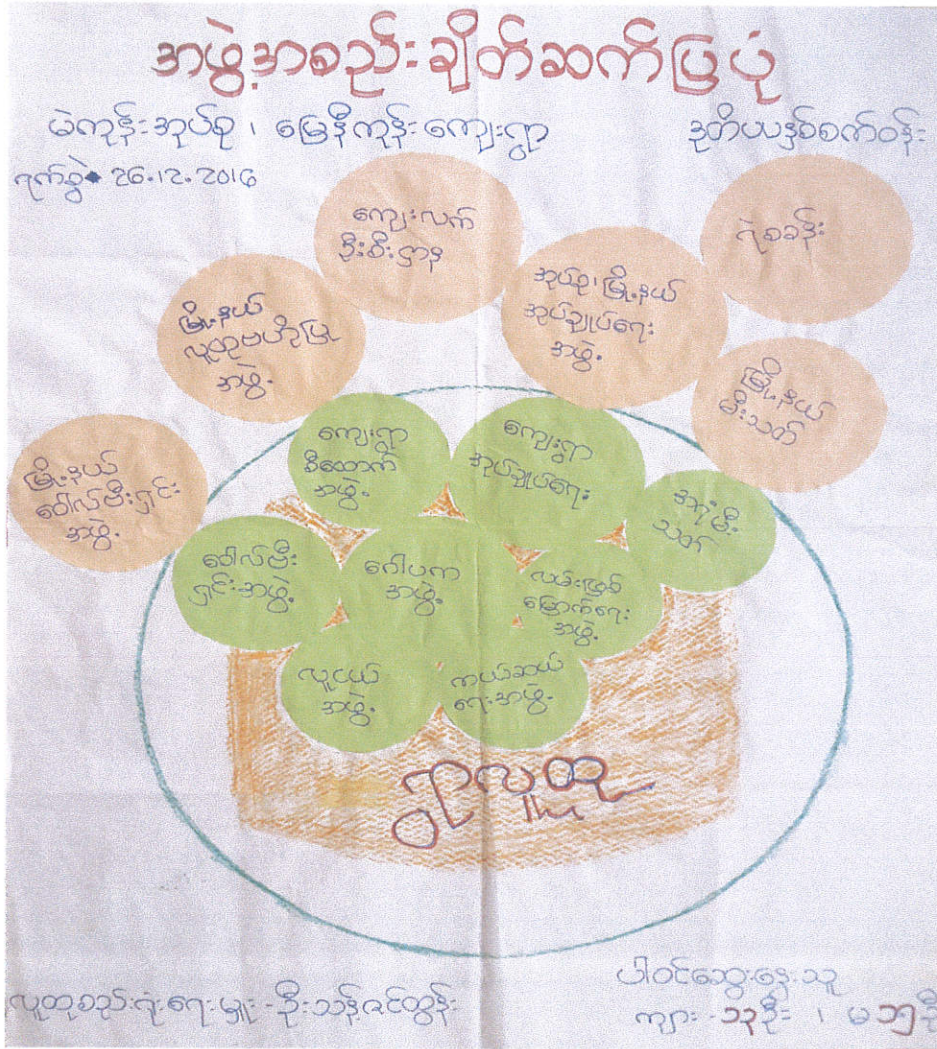 အဖွဲ့အစည်းချိတ်ဆက်ပြပုံ
မဲကုန်းအုပ်စု ၊ မြေနီကုန်းကျေးရွာ
ဒုတိယနှစ်စက်ဝန်း
ရက်စွဲ 26.12.2016
ကျေးလက်
ဦးစီးဌာန
ရဲစခန်း
မြို့နယ်
လူထုဗဟိုပြု
အဖွဲ့
အုပ်စု၊ မြို့နယ်
အုပ်ချုပ်ရေး
အဖွဲ့
မြို့နယ်
မီးသတ်
မြို့နယ်
ဝေါလ်ဗီးရှင်း
အဖွဲ့
ကျေးရွာ
စီထောက်
အဖွဲ့
ကျေးရွာ
အုပ်ချုပ်ရေး
အရံမီး
သတ်
ဝေါလ်ဗီး
ရှင်းအဖွဲ့
ဂေါပက
အဖွဲ့
လမ်းဖြစ်
မြောက်ရေး
အဖွဲ့
လူငယ်
အဖွဲ့
ကယ်ဆယ်
ရေးအဖွဲ့
ရွာလူထု
လူထုစည်းရုံးရေးမှူး - ဦးသန့်ဇင်ထွန်း
ပါဝင်ဆွေးနွေးသူ
ကျား - ၁၃ဦး ၊ မ ၁၅ဦး